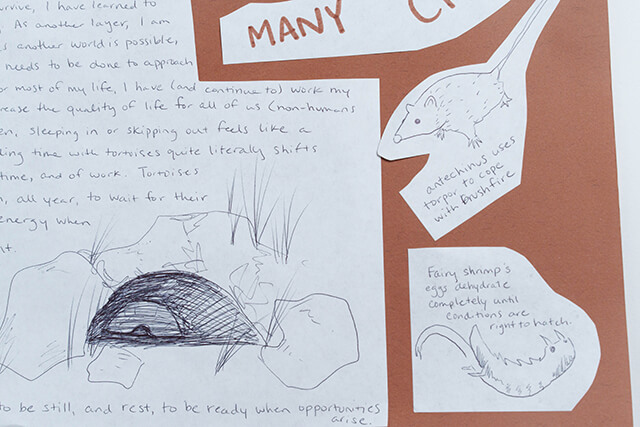 survive, I have learned to
. As another layer, I am
another world is possible,
needs to be done to approach
or most of my life, I have (and continue to) work my
rease the quality of life for all of us (non-humans
en, sleeping in or skipping out feels like a
ding time with tortoises quite literally shifts
time, and of work. Tortoises
, all year, to wait for their
energy when
to be still, and rest, to be ready when opportunities
arise.
MANY
antechinus uses
torpor to cope
with Brushfire
Fairy shrimp's
eggs dehydrate
completely until
conditions are
right to hatch.